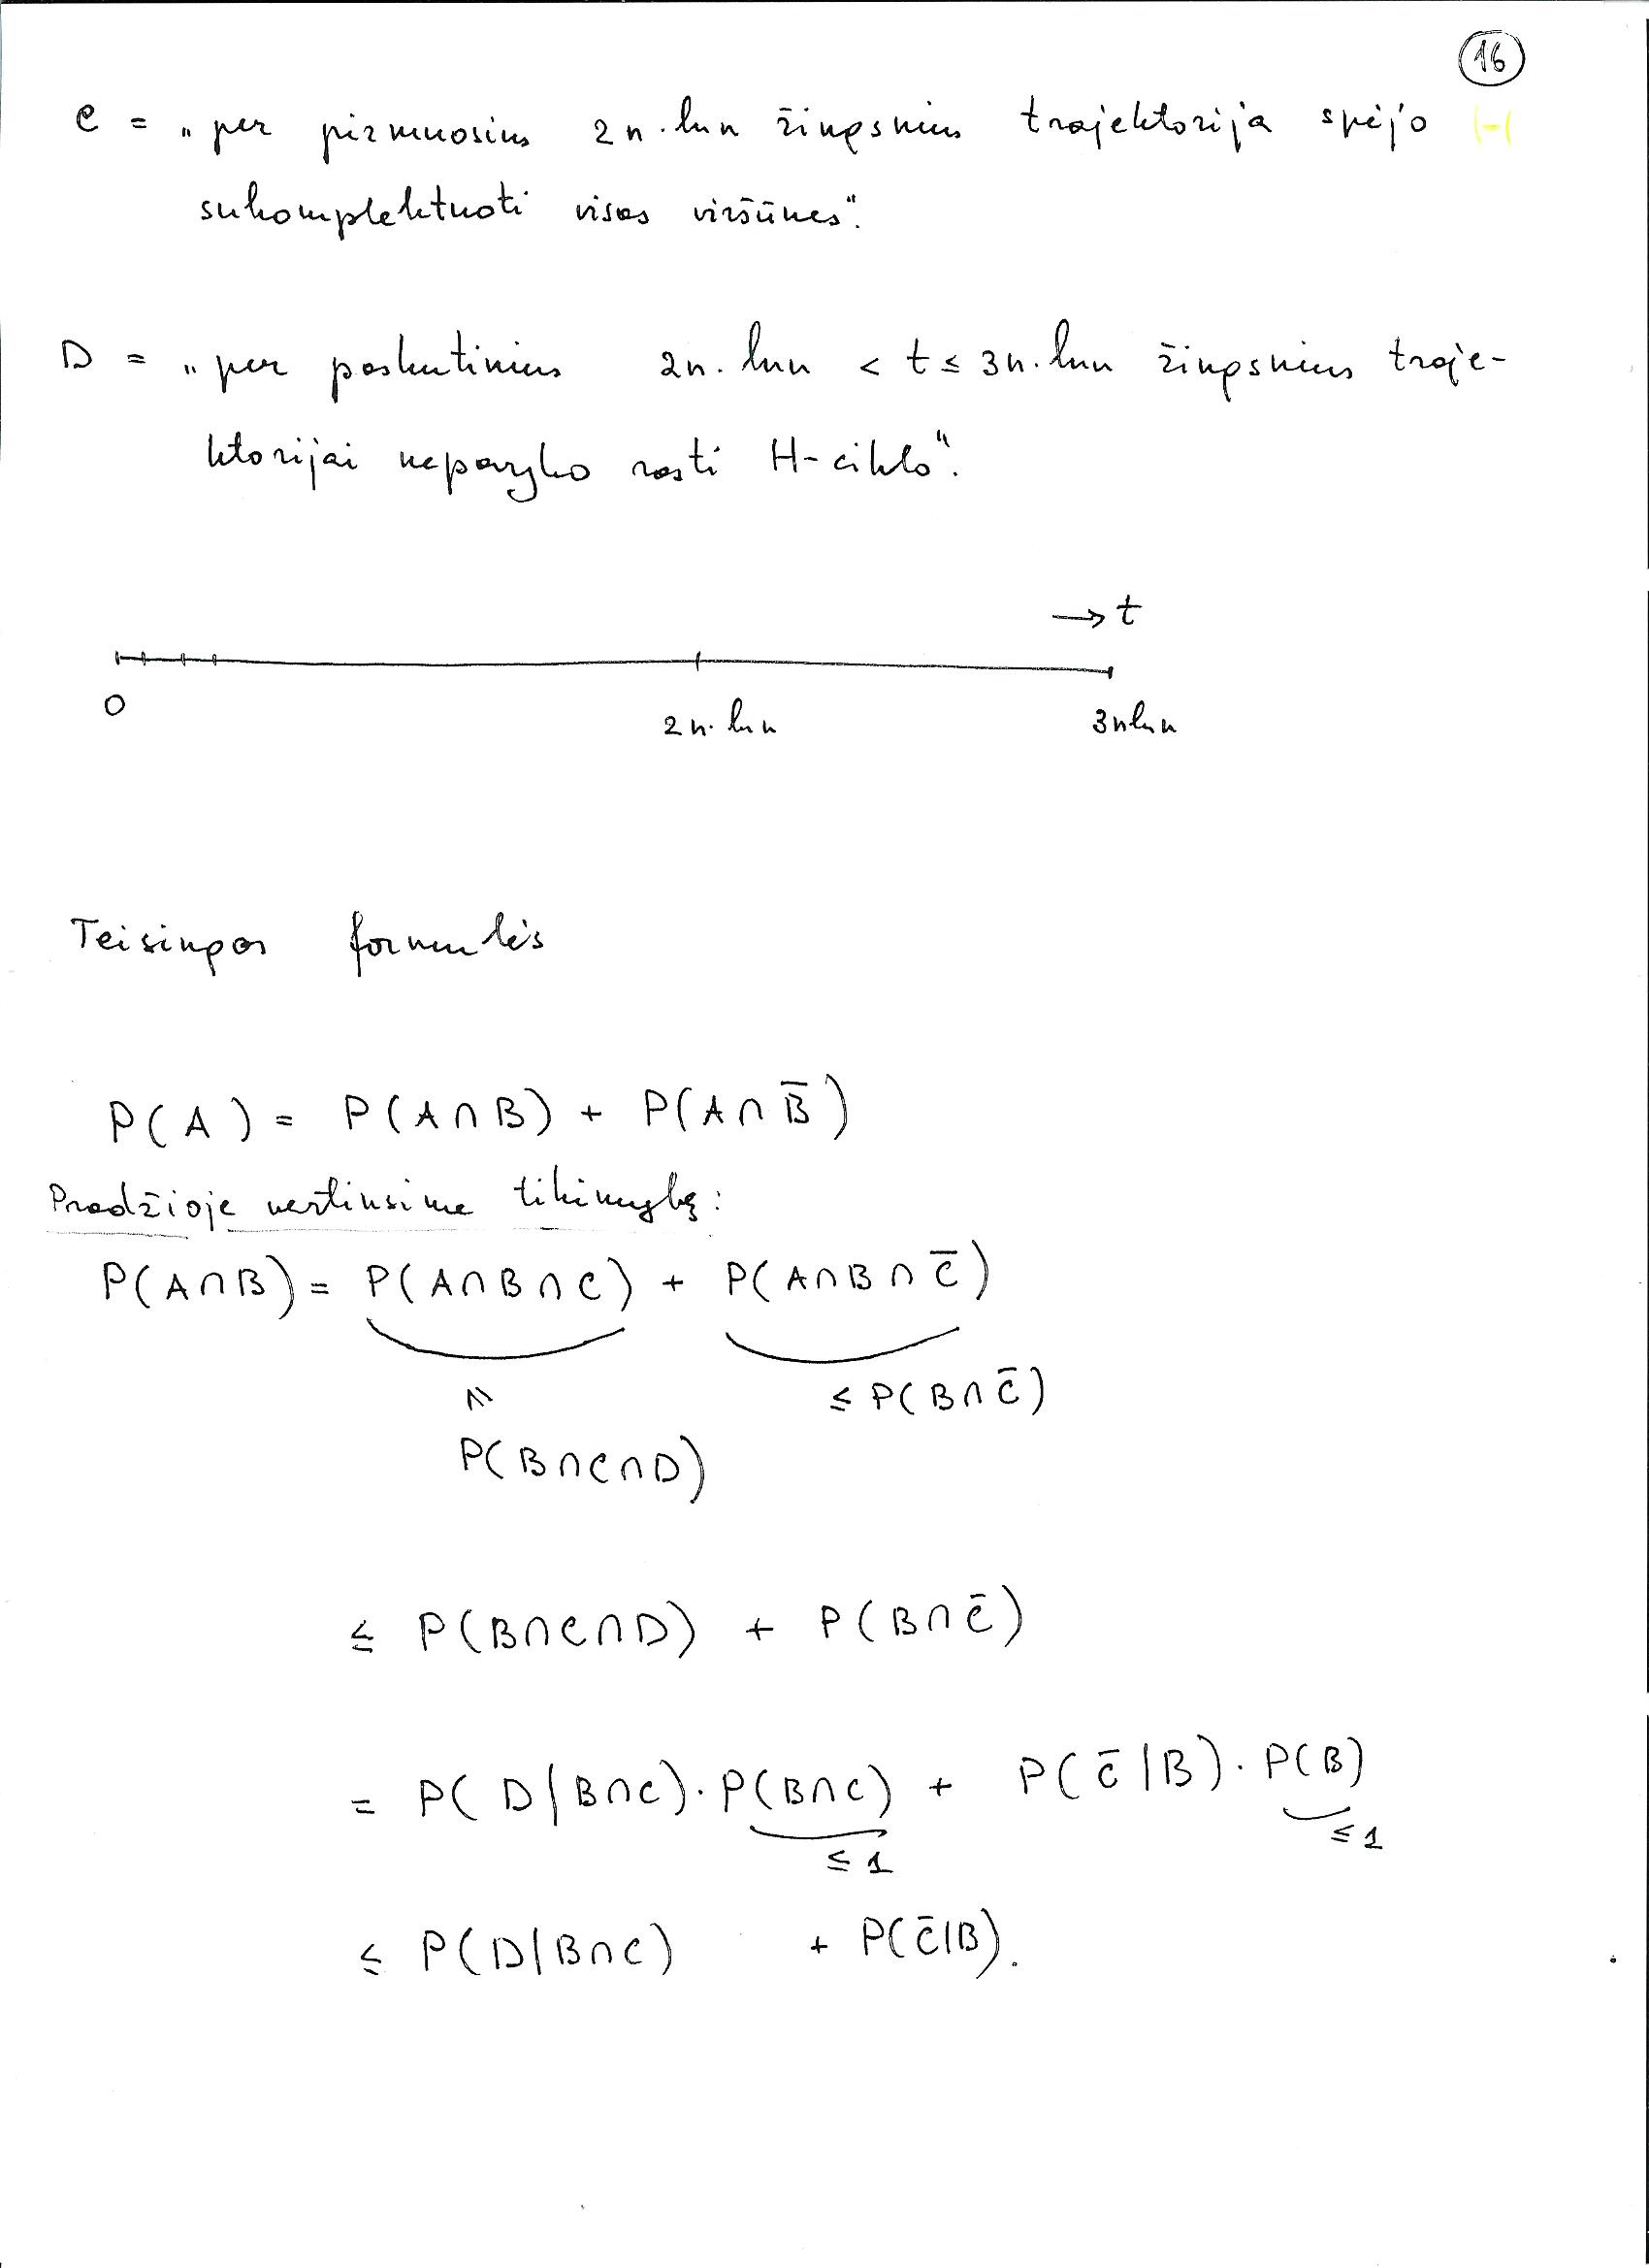 16
C = „per pirmuosius 2n·ln n žingsnius trajektorija spėjo
sukomplektuoti visas viršūnes“.
D = „per paskutinius 2n·ln n < t ≤ 3n·ln n žingsnius traje-
ktorijai nepavyko rasti H-ciklo“.
→ t
0 2n·ln n 3n ln n
Teisingos formulės
P(A) = P(A∩B) + P(A∩B̄)
Pradžioje vertinsime tikimybę:
P(A∩B) = P(A∩B∩C) + P(A∩B∩C̄)
≤ P(B∩C̄)
P(B∩C∩D)
≤ P(B∩C∩D) + P(B∩C̄)
= P(D|B∩C)·P(B∩C) + P(C̄|B)·P(B)
≤ 1 ≤ 1
≤ P(D|B∩C) + P(C̄|B).